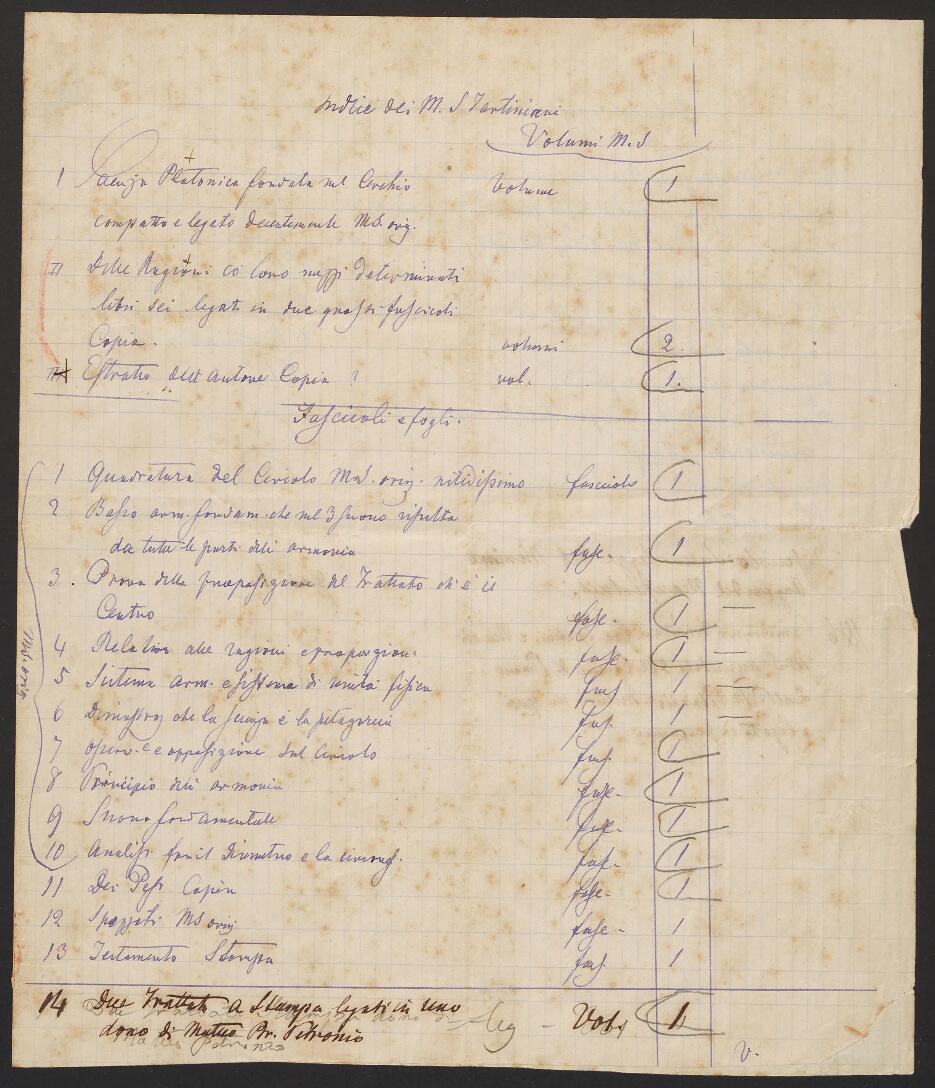 Indice dei M. S Tartiniani
Volumi M.S
1 Scienza Platonica fondata nel Cerchio Volume 1
compatto e legato decentemente MS. orig.
II Delle Ragioni
libri sei legati in due grossi fascicoli
Copia. volumi 2.
III Estratto dell autore Copia ? vol. 1.
Fascicoli e fogli.
1 Quadratura del Circolo MS. orig. nitidissimo fascicolo 1
2 Basso arm. fondam. che nel 3 suono risulta
da tutte le parti dell armonia fasc. 1
3. Prova della proposizione del Trattato ch'è il
Centro fasc. 1
4 Relative alle ragioni e proporzion. fasc. 1
5 Sistema arm. e sistema di unità fisica fas. 1
6 Dimostraz che la scienza è la pitagorica fas. 1
7 Osserv. e opposizione sul Circolo fas. 1
8 Principio dell armonia fasc. 1
9 Suono fondamentale fasc. 1
10 Analisi fra il Diametro e la circonf. fasc. 1
11 Dei Pesi Copia fasc. 1
12 Spezzati MS orig fasc. 1
13 Testamento Stampa fas. 1
MS. orig.
14 Due Trattati a Stampa legati in uno leg - Vol. 1
dono di Matteo Dr. Petronio
v.